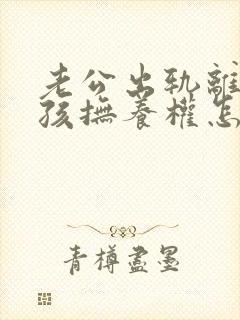 老公出轨離
孩撫養權怎
青樽盡墨